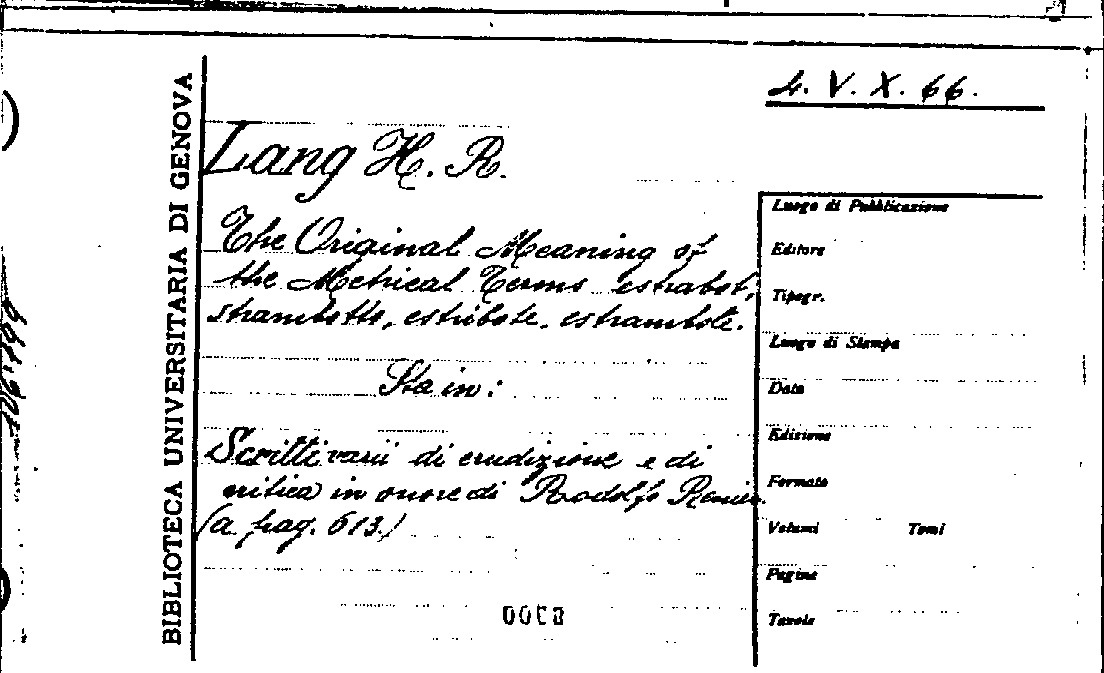 4. V. X. 66.
BIBLIOTECA UNIVERSITARIA DI GENOVA
Lang H. R.
The Original Meaning of
the Metrical Terms estrabot,
strambotto, estribote, estrambote.
Sta in:
Scritti varii di erudizione e di
critica in onore di Rodolfo Renier.
(a pag. 613.)
Luogo di Pubblicazione
Editore
Tipogr.
Luogo di Stampa
Data
Edizione
Formato
Volumi Tomi
Pagine
Tavole